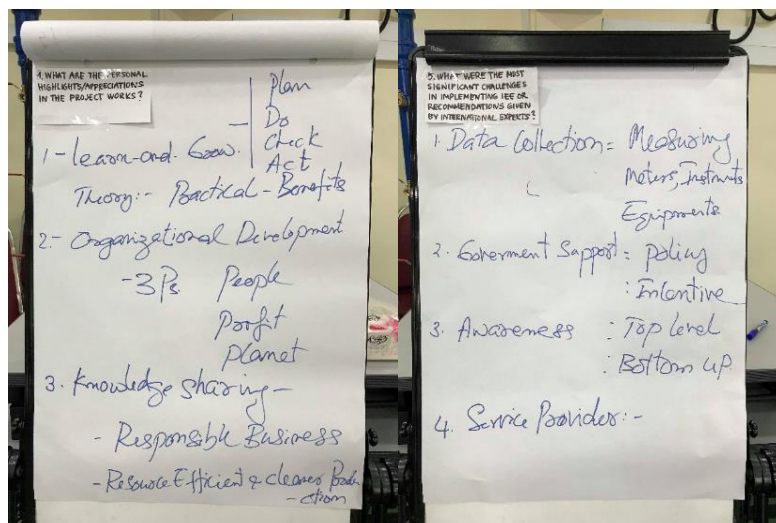 1. WHAT ARE THE PERSONAL
HIGHLIGHTS/APPRECIATIONS
IN THE PROJECT WORKS?
1 - Learn-and-Grow.
Plan
Do
Check
Act
Theory:- Practical - Benefits
2.- Organizational Development
- 3 Ps. People
Profit
Planet
3. Knowledge sharing -
- Responsible Business
- Resource Efficient & cleaner Produ
- ction
5. WHAT WERE THE MOST
SIGNIFICANT CHALLENGES
IN IMPLEMENTING IEE OR
RECOMMENDATIONS GIVEN
BY INTERNATIONAL EXPERTS?
1. Data Collection = Measuring
Meters, Instruments
Equipments
2. Goverment Support = Policy
: Incentive
3. Awareness : Top Level
: Bottom up.
4. Service Provider:-